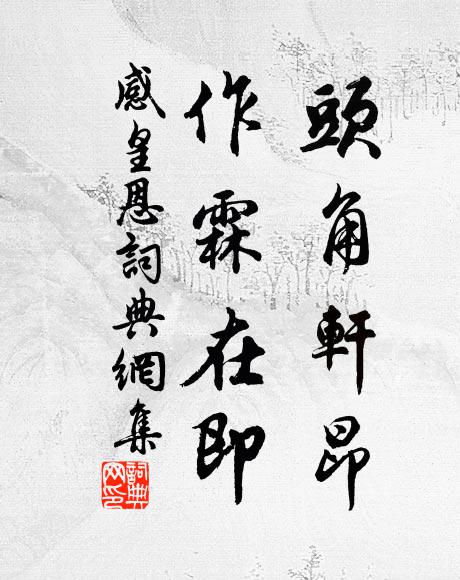 頭角軒昂
作霖在即
感皇恩詞典網集
詞典网印